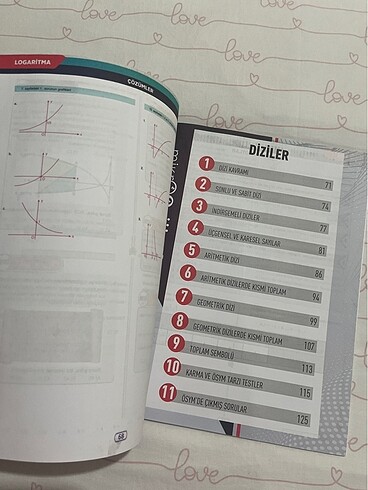 LOGARİTMA
ÇÖZÜMLER
68
DİZİLER
1 DİZİ KAVRAMI 71
2 SONLU VE SABİT DİZİ 74
3 İNDİRGEMELİ DİZİLER 77
4 ÜÇGENSEL VE KARESEL SAYILAR 81
5 ARİTMETİK DİZİ 86
6 ARİTMETİK DİZİLERDE KISMİ TOPLAM 94
7 GEOMETRİK DİZİ 99
8 GEOMETRİK DİZİLERDE KISMİ TOPLAM 107
9 TOPLAM SEMBOLÜ 113
10 KARMA VE ÖSYM TARZI TESTLER 115
11 ÖSYM'DE ÇIKMIŞ SORULAR 125
love
love
love
love
love
love